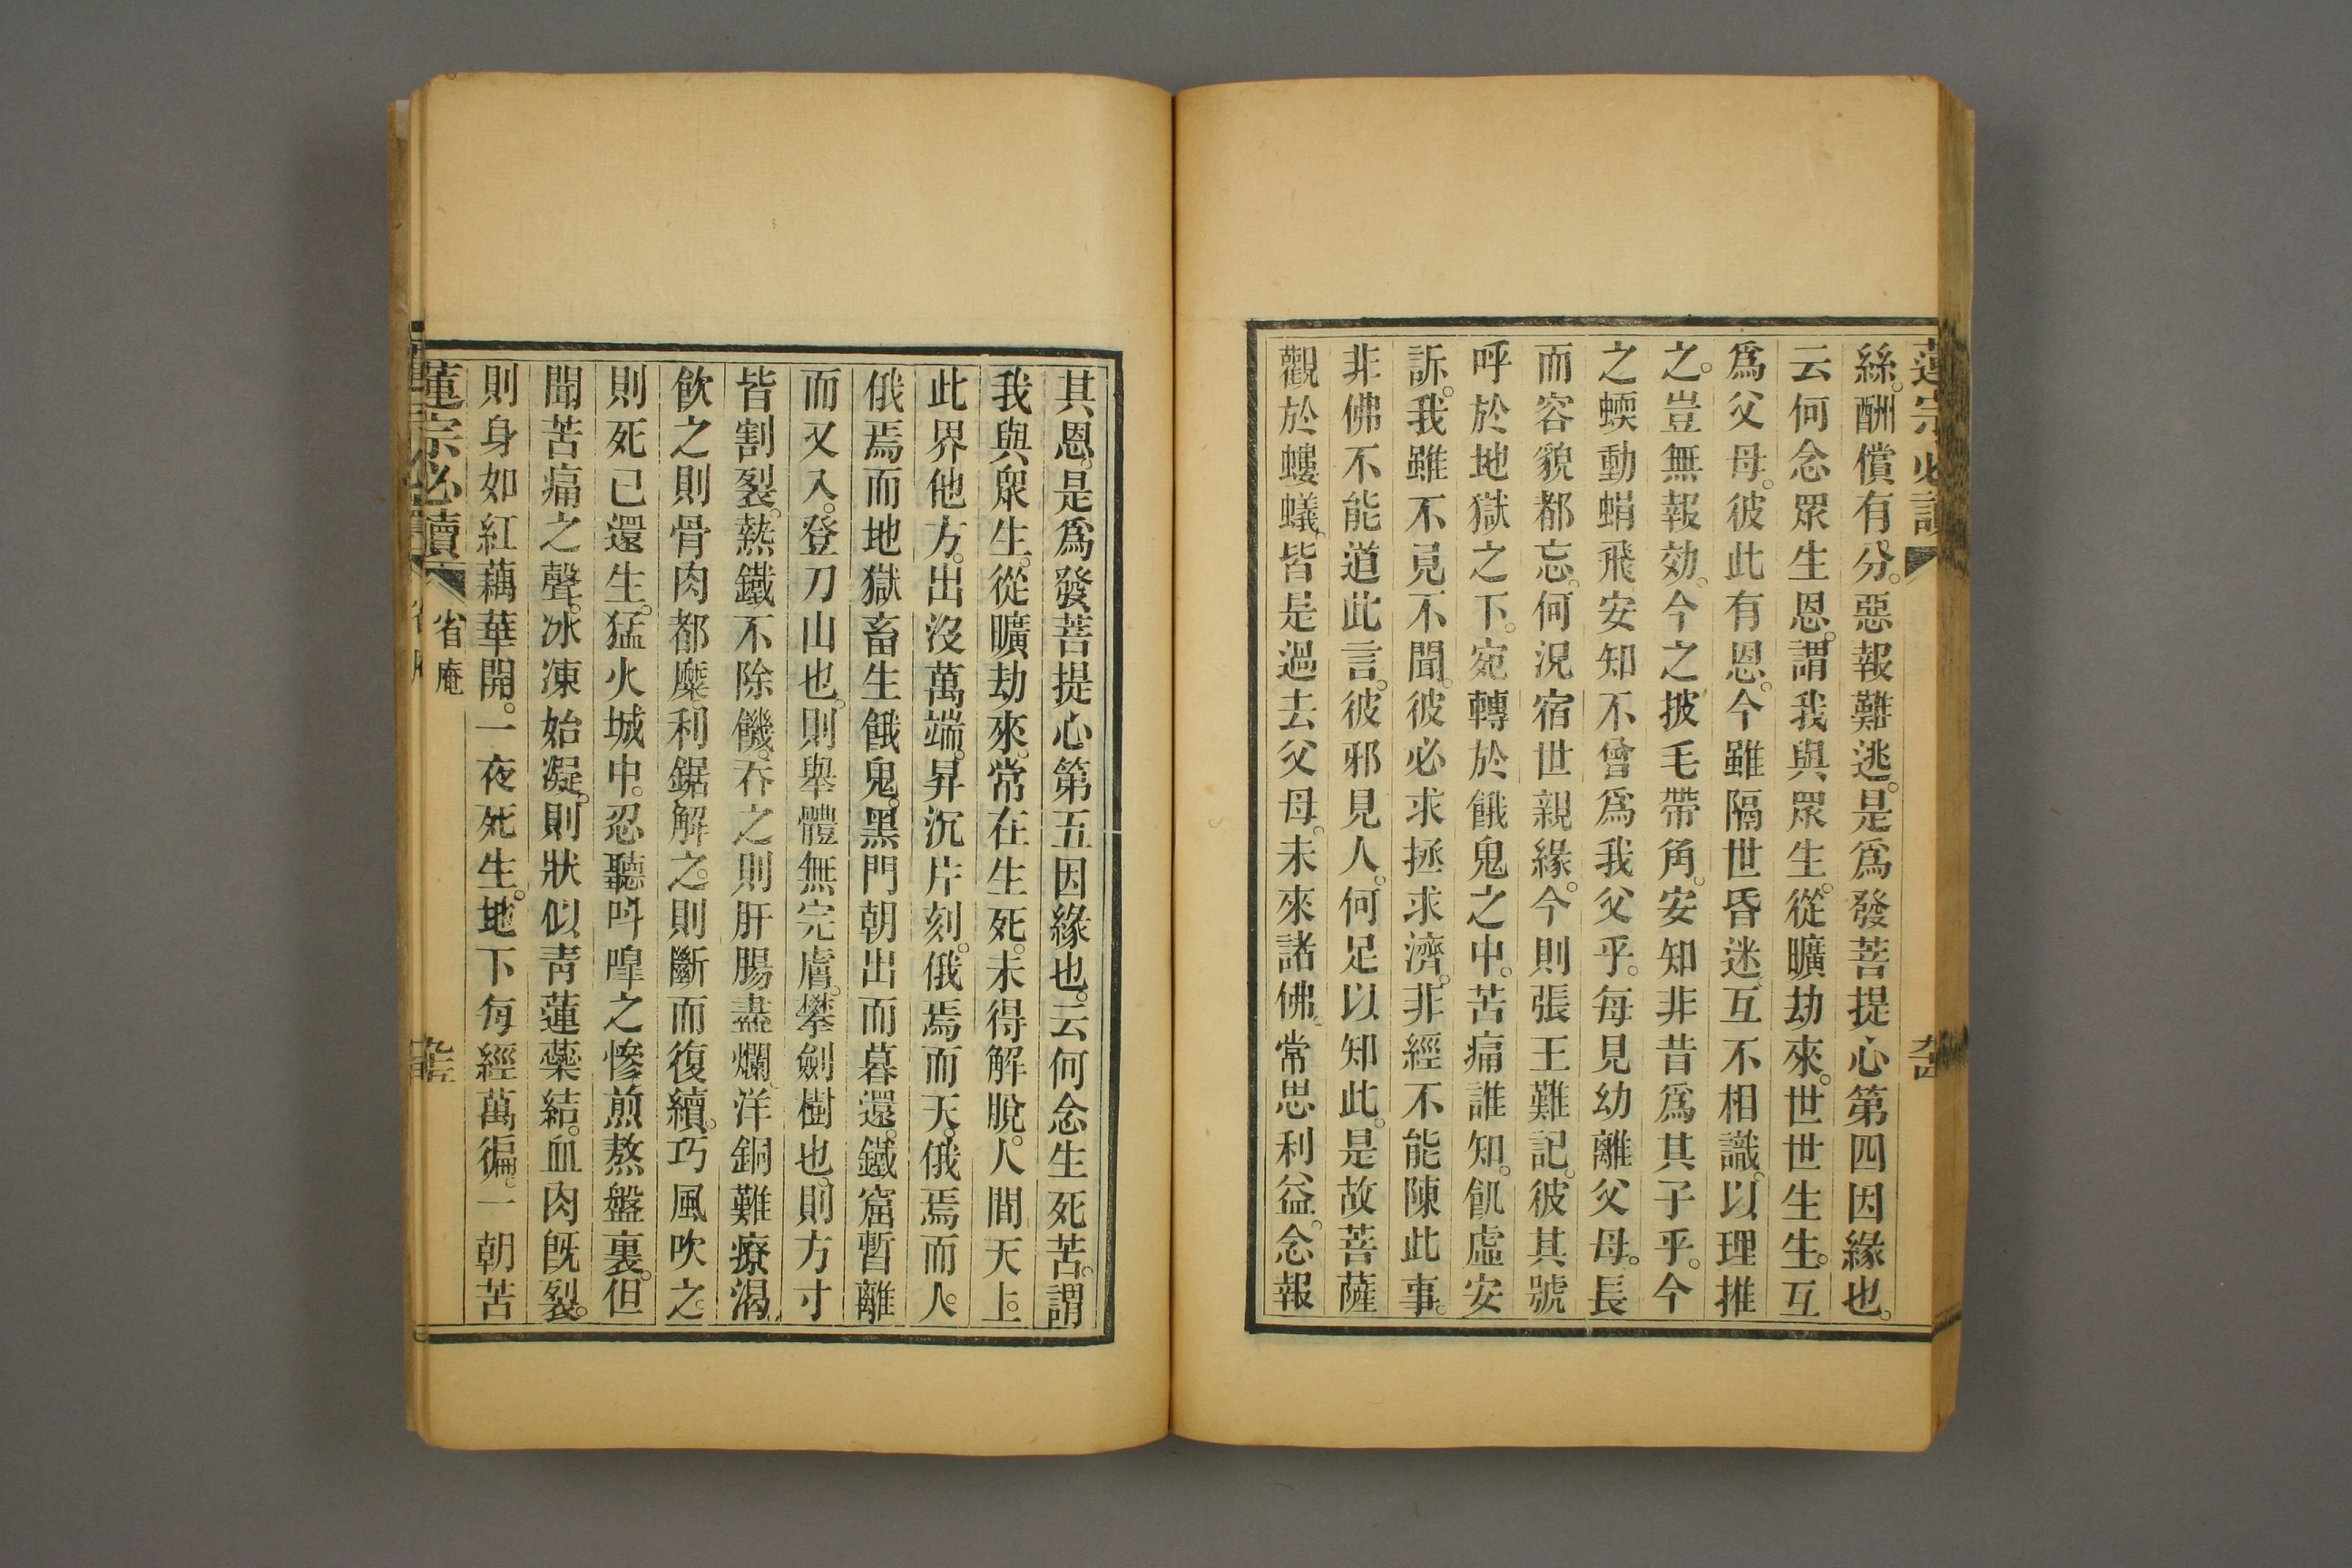 蓮宗必讀
絲。酬償有分。惡報難逃。是爲發菩提心第四因緣也。
云何念眾生恩。謂我與眾生。從曠劫來。世世生生。互
爲父母。彼此有恩。今雖隔世昏迷。互不相識。以理推
之。豈無報効。今之披毛帶角。安知非昔爲其子乎。今
之蝡動蜎飛。安知不曾爲我父乎。每見幼離父母。長
而容貌都忘。何況宿世親緣。今則張王難記。彼其號
呼於地獄之下。宛轉於餓鬼之中。苦痛誰知。飢虛安
訴。我雖不見不聞。彼必求拯求濟。非經不能陳此事。
非佛不能道此言。彼邪見人。何足以知此。是故菩薩
觀於螻蟻。皆是過去父母。未來諸佛。常思利益。念報
其恩。是爲發菩提心第五因緣也。云何念生死苦。謂
我與眾生。從曠劫來。常在生死。未得解脫。人間天上。
此界他方。出沒萬端。昇沉片刻。俄焉而天。俄焉而人。
俄焉而地獄畜生餓鬼。黑門朝出而暮還。鐵窟暫離
而又入。登刀山也。則舉體無完膚。攀劍樹也。則方寸
皆割裂。熱鐵不除饑。吞之則肝腸盡爛。洋銅難療渴。
飲之則骨肉都糜。利鋸解之。則斷而復續。巧風吹之。
則死已還生。猛火城中。忍聽呌嘷之慘。煎熬盤裏。但
聞苦痛之聲。冰凍始凝。則狀似青蓮蘂結。血肉旣裂。
則身如紅藕華開。一夜死生。地下每經萬徧。一朝苦
蓮宗必讀 省庵